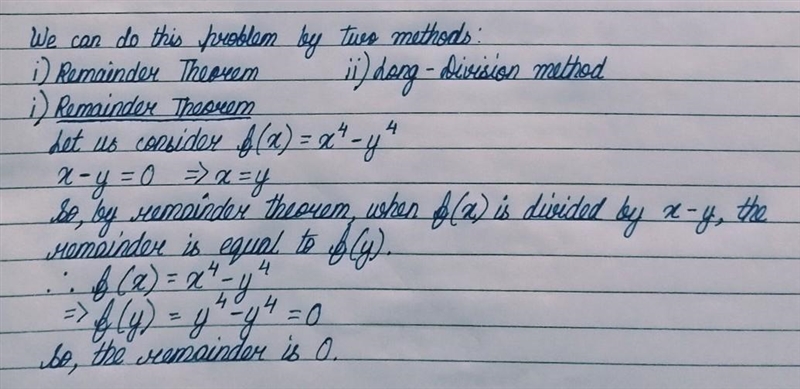 We can do this problem by two methods:
i) Remainder Theorem ii) Long-Division method
i) Remainder Theorem
Let us consider f(x) = x⁴-y⁴
x-y=0 ⇒ x=y
So, by remainder theorem, when f(x) is divided by x-y, the
remainder is equal to f(y).
∴ f(x) = x⁴-y⁴
⇒ f(y) = y⁴-y⁴ = 0
So, the remainder is 0.